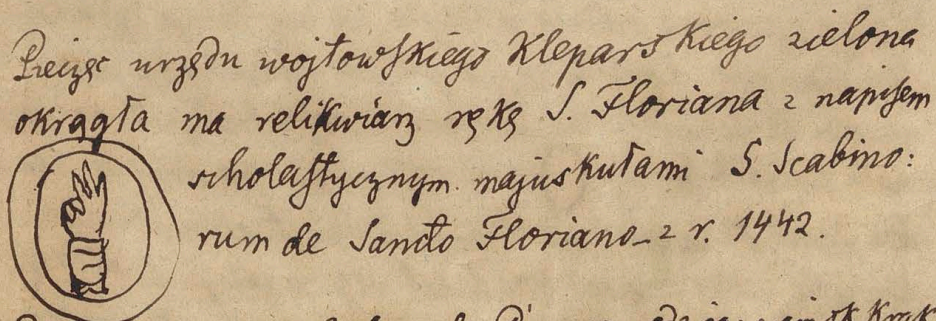 Pieczęc urzędu wojtowſkiego Kleparskiego zielona
okrągła ma relikwiarz rękę S. Floriana z napiſem
scholaſtycznym majuskułami S. Scabino:
rum de Sancto Floriano_ z r. 1442.